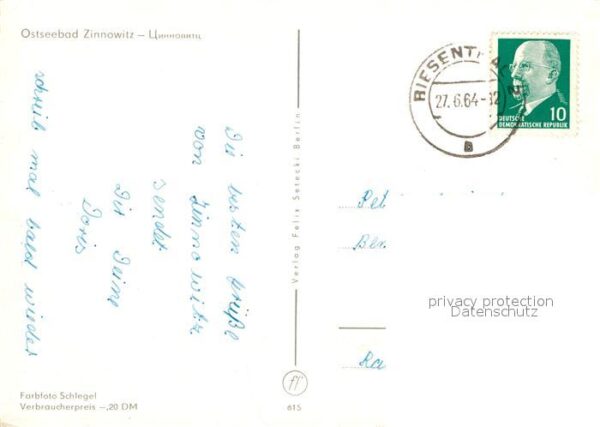 Ostseebad Zinnowitz – Цинновитц
Die besten Grüße
von Zinnowitz
sendet
Dir Deine
Doris
schreib mal bald wieder
Farbfoto Schlegel
Verbraucherpreis –,20 DM
Verlag Felix Setecki Berlin
ff
615
27.6.64-12
B
10
DEUTSCHE
DEMOKRATISCHE REPUBLIK
Pet
Ber
privacy protection
Datenschutz
Ra